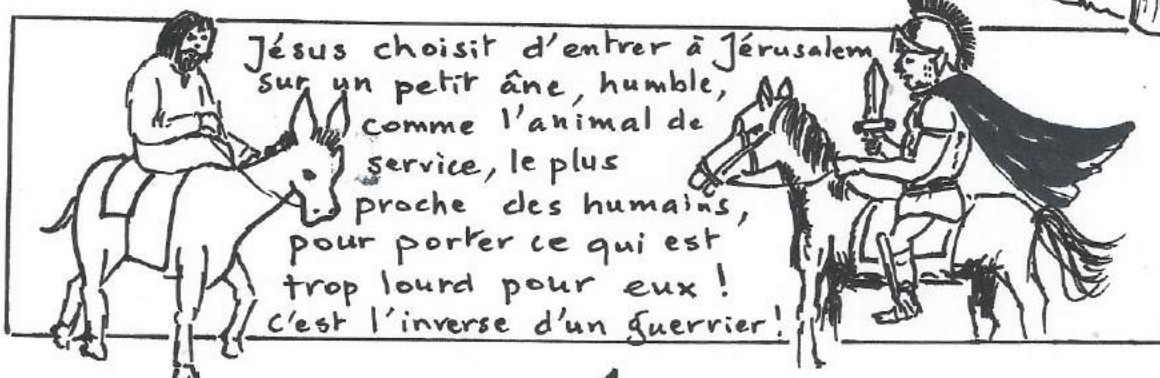 Jésus choisit d'entrer à Jérusalem
sur un petit âne, humble,
comme l'animal de
service, le plus
proche des humains,
pour porter ce qui est
trop lourd pour eux !
c'est l'inverse d'un guerrier!